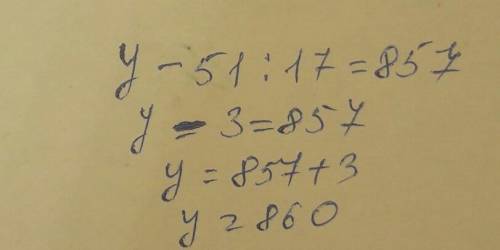 y - 51 : 17 = 857
y - 3 = 857
y = 857 + 3
y = 860